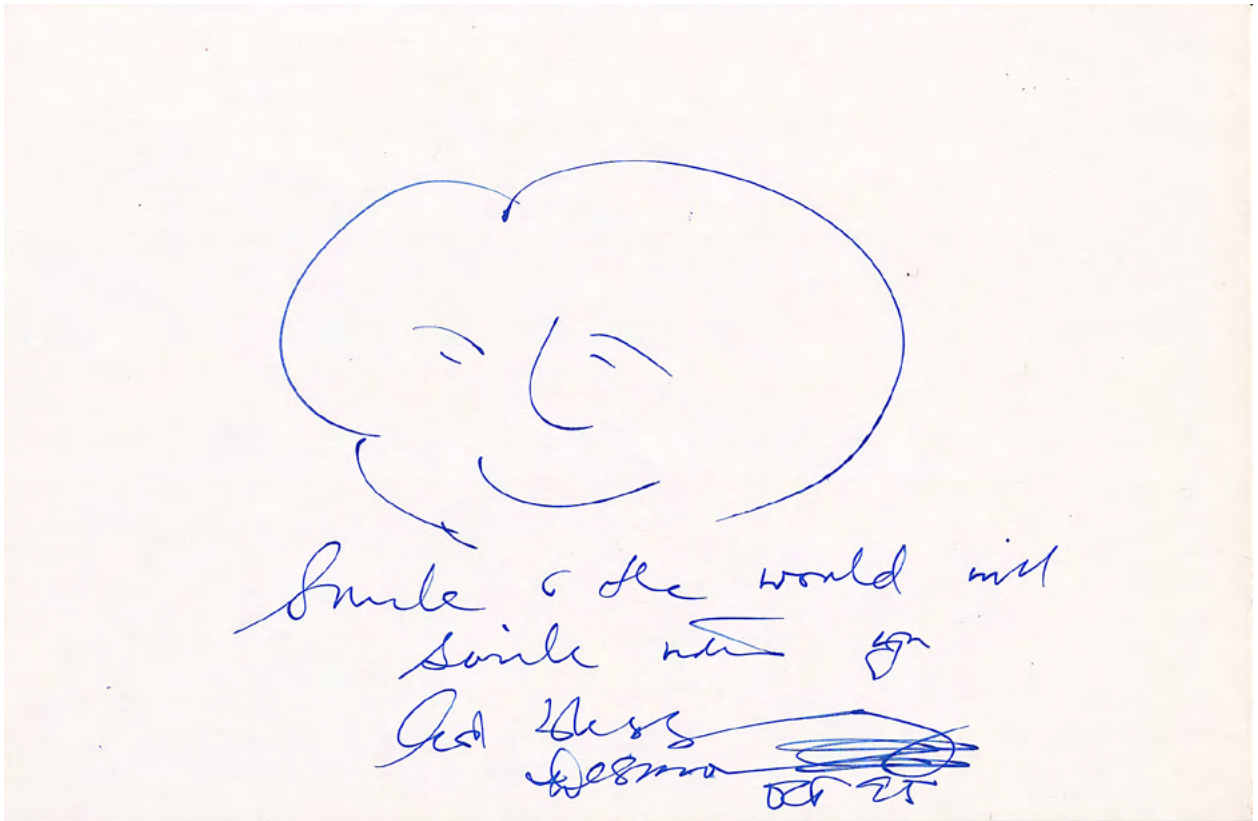 Smile & the world will
smile with you
God bless
Desmond
OCT 95